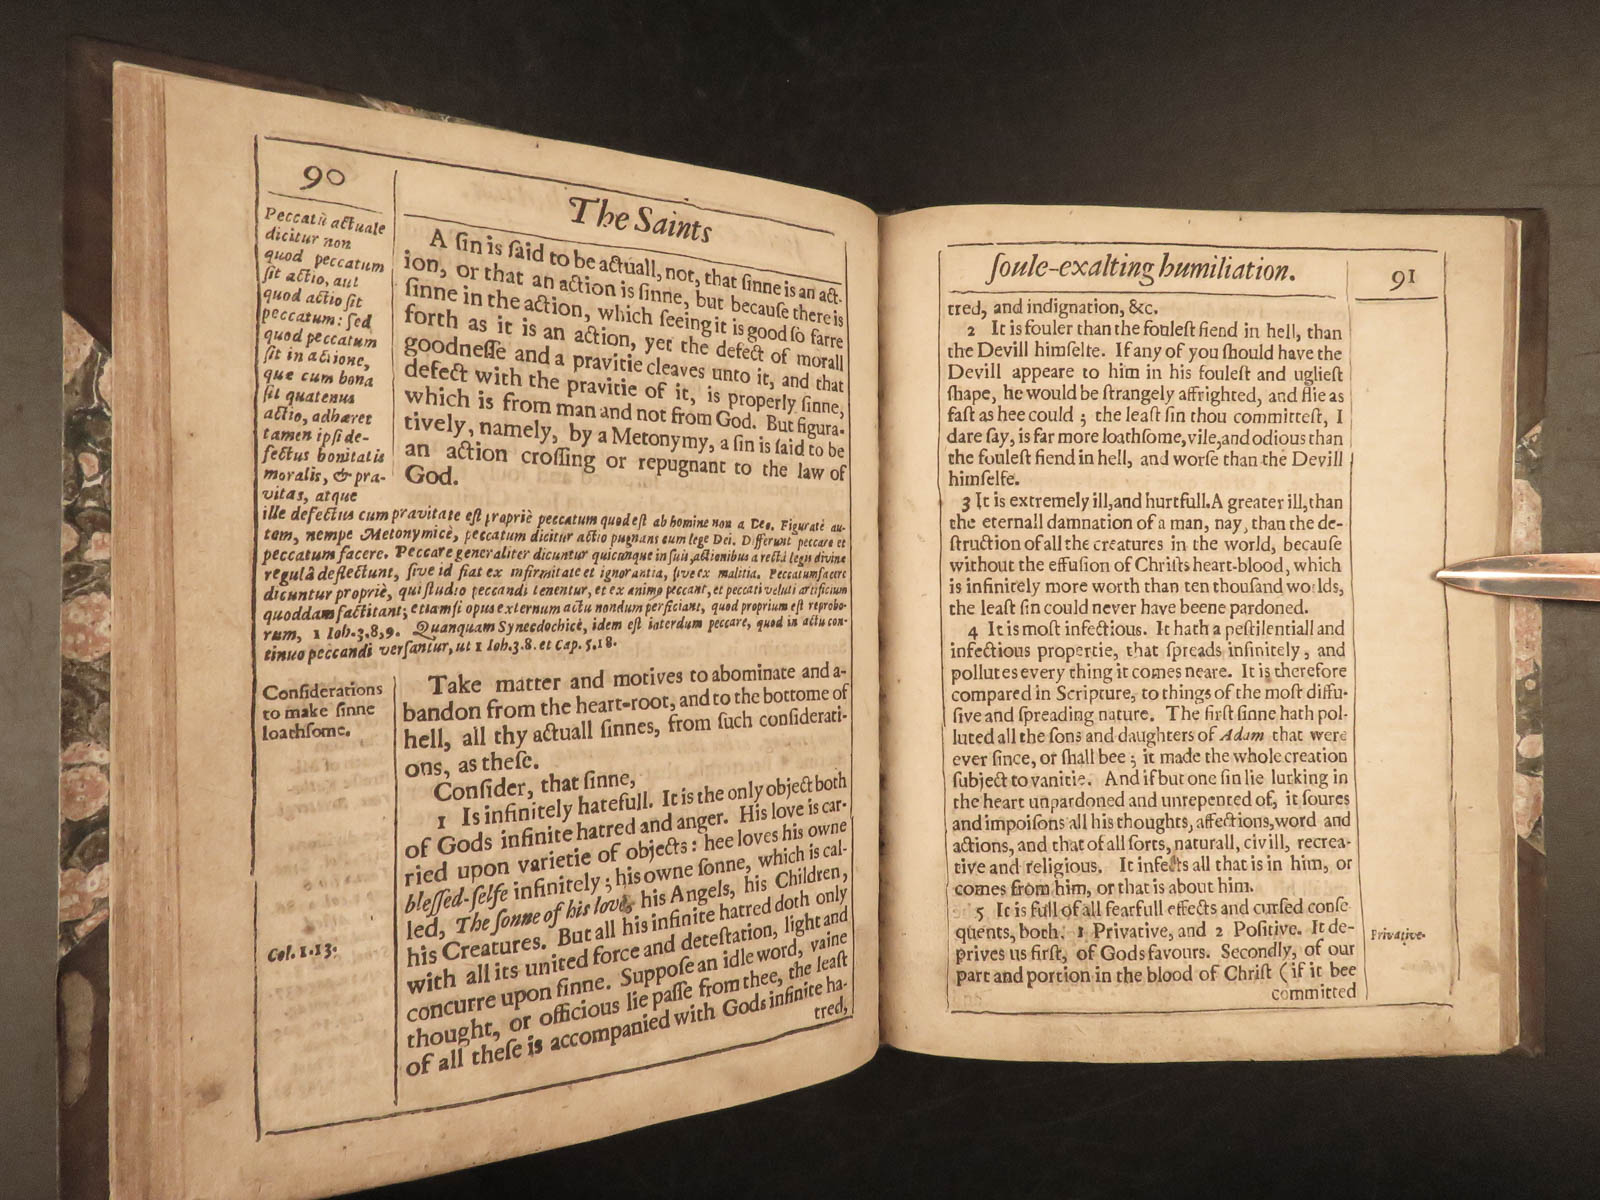 90
The Saints
Peccatū actuale
dicitur non
quod peccatum
ſit actio, aut
quod actio ſit
peccatum: ſed
quod peccatum
ſit in actione,
que cum bona
ſit quatenus
actio, adhæret
tamen ipſi de-
fectus bonitatis
moralis, & pra-
vitas, atque
ille defectus cum pravitate eſt propriè peccatum quod eſt ab homine non a Deo. Figuratè au-
tem, nempe Metonymicè, peccatum dicitur actio pugnans cum lege Dei. Differunt peccare et
peccatum facere. Peccare generaliter dicuntur quicunque in ſuis actionibus a rectâ legis divine
regulâ deflectunt, ſive id fiat ex infirmitate et ignorantia, ſive ex malitia. Peccatum facere
dicuntur propriè, qui ſtudio peccandi tenentur, et ex animo peccant, et peccati veluti artificium
quoddam factitant; etiamſi opus externum actu nondum perficiant, quod proprium eſt reprobo-
rum, 1 Ioh. 3. 8, 9. Quanquam Synecdochicè, idem eſt interdum peccare, quod in actu con-
tinuo peccandi verſantur, ut 1 Ioh. 3. 8. et Cap. 5. 18.
A ſin is ſaid to be actuall, not, that ſinne is an act-
ion, or that an action is ſinne, but becauſe there is
ſinne in the action, which ſeeing it is good ſo farre
forth as it is an action, yet the defect of morall
goodneſſe and a pravitie cleaves unto it, and that
defect with the pravitie of it, is properly ſinne,
which is from man and not from God. But figura-
tively, namely, by a Metonymy, a ſin is ſaid to be
an action croſſing or repugnant to the law of
God.
Conſiderations
to make ſinne
loathſome.
Take matter and motives to abominate and a-
bandon from the heart-root, and to the bottome of
hell, all thy actuall ſinnes, from ſuch conſiderati-
ons, as theſe.
Conſider, that ſinne,
1 Is infinitely hatefull. It is the only object both
of Gods infinite hatred and anger. His love is car-
ried upon varietie of objects: hee loves his owne
bleſſed-ſelfe infinitely; his owne ſonne, which is cal-
led, The ſonne of his love, his Angels, his Children,
his Creatures. But all his infinite hatred doth only
with all its united force and deteſtation, light and
concurre upon ſinne. Suppoſe an idle word, vaine
thought, or officious lie paſſe from thee, the leaſt
of all theſe is accompanied with Gods infinite ha-
tred,
Col. 1. 13.
ſoule-exalting humiliation.
91
tred, and indignation, &c.
2 It is fouler than the fouleſt fiend in hell, than
the Devill himſelfe. If any of you ſhould have the
Devill appeare to him in his fouleſt and uglieſt
ſhape, he would be ſtrangely affrighted, and flie as
faſt as hee could; the leaſt ſin thou committeſt, I
dare ſay, is far more loathſome, vile, and odious than
the fouleſt fiend in hell, and worſe than the Devill
himſelfe.
3 It is extremely ill, and hurtfull. A greater ill, than
the eternall damnation of a man, nay, than the de-
ſtruction of all the creatures in the world, becauſe
without the effuſion of Chriſts heart-blood, which
is infinitely more worth than ten thouſand wo lds,
the leaſt ſin could never have beene pardoned.
4 It is moſt infectious. It hath a peſtilentiall and
infectious propertie, that ſpreads infinitely, and
pollutes every thing it comes neare. It is therefore
compared in Scripture, to things of the moſt diffu-
ſive and ſpreading nature. The firſt ſinne hath pol-
luted all the ſons and daughters of Adam that were
ever ſince, or ſhall bee; it made the whole creation
ſubject to vanitie. And if but one ſin lie lurking in
the heart unpardoned and unrepented of, it ſoures
and impoiſons all his thoughts, affections, word and
actions, and that of all ſorts, naturall, civill, recrea-
tive and religious. It infects all that is in him, or
comes from him, or that is about him.
5 It is full of all fearfull effects and curſed conſe
quents, both. 1 Privative, and 2 Poſitive. It de-
prives us firſt, of Gods favours. Secondly, of our
part and portion in the blood of Chriſt (if it bee
committed
Privative.